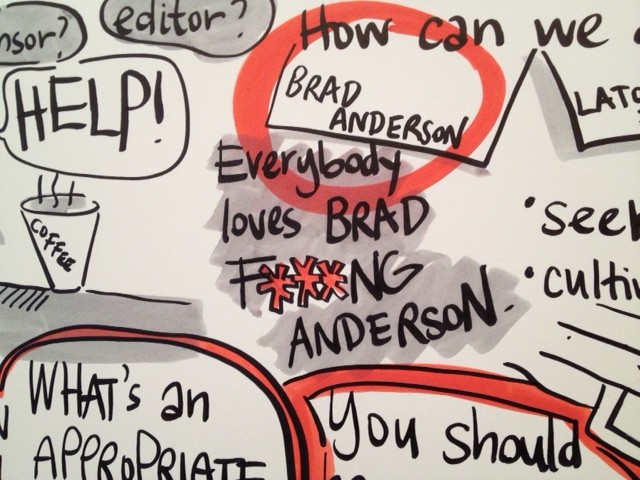 editor?
HELP!
COFFEE
How can we
BRAD
ANDERSON
Everybody
loves BRAD
F***NG
ANDERSON.
WHAT's an
APPROPRIATE
You should